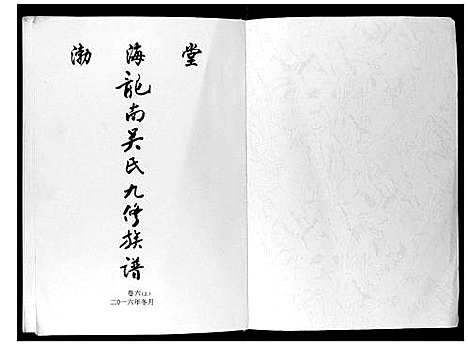 渤海堂
龍南吴氏九修族谱
卷六(上)
二〇一六年冬月